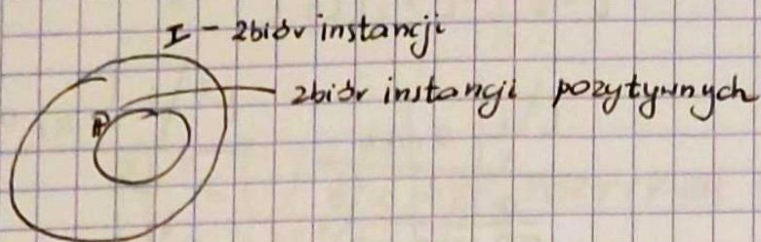 I - zbiór instancji
zbiór instancji pozytywnych